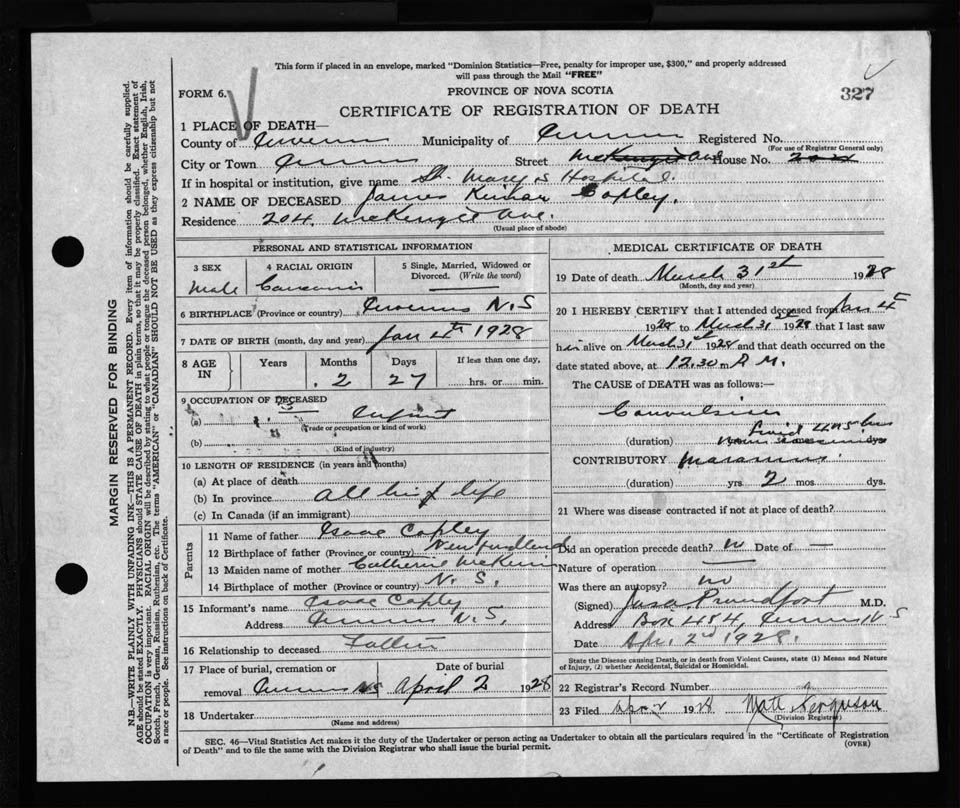 This form if placed in an envelope, marked "Dominion Statistics—Free, penalty for improper use, $300," and properly addressed
will pass through the Mail "FREE"
FORM 6.
PROVINCE OF NOVA SCOTIA
327
CERTIFICATE OF REGISTRATION OF DEATH
1 PLACE OF DEATH—
County of Inverness Municipality of Inverness Registered No.
(For use of Registrar General only)
City or Town Inverness Street McKenzie Ave House No. 204
If in hospital or institution, give name St. Mary's Hospital.
2 NAME OF DECEASED James Copley.
Residence 204. McKenzie Ave.
(Usual place of abode)
PERSONAL AND STATISTICAL INFORMATION
3 SEX
Male
4 RACIAL ORIGIN
5 Single, Married, Widowed or
Divorced. (Write the word)
6 BIRTHPLACE (Province or country) Inverness N.S
7 DATE OF BIRTH (month, day and year) Jan 4th 1928
8 AGE IN
Years Months Days If less than one day,
2 27 hrs. or min.
9 OCCUPATION OF DECEASED
(a) Infant
(Trade or occupation or kind of work)
(b)
(Kind of industry)
10 LENGTH OF RESIDENCE (in years and months)
(a) At place of death
(b) In province all his life
(c) In Canada (if an immigrant)
Parents
11 Name of father Isaac Copley
12 Birthplace of father (Province or country) Newfoundland
13 Maiden name of mother Catherine
14 Birthplace of mother (Province or country) N. S.
15 Informant's name Isaac Copley
Address Inverness N.S.
16 Relationship to deceased Father
17 Place of burial, cremation or
removal Inverness NS
Date of burial
April 2 1928
18 Undertaker
(Name and address)
MEDICAL CERTIFICATE OF DEATH
19 Date of death March 31st 1928
(Month, day and year)
20 I HEREBY CERTIFY that I attended deceased from
1928 to March 31st 1928 that I last saw
him alive on March 31st 1928 and that death occurred on the
date stated above, at 12.30 M.
The CAUSE OF DEATH was as follows:—
Convulsions
(duration) dys
CONTRIBUTORY Marasmus.
(duration) yrs. 2 mos. dys.
21 Where was disease contracted if not at place of death?
Did an operation precede death? no Date of —
Nature of operation —
Was there an autopsy? no
(Signed) M.D.
Address Box 454, Inverness N S
Date Apr. 2nd 1928.
State the Disease causing Death, or in death from Violent Causes, state (1) Means and Nature
of Injury, (2) whether Accidental, Suicidal or Homicidal.
22 Registrar's Record Number
23 Filed Apr 2 1928 Matt Ferguson
(Division Registrar)
SEC. 46—Vital Statistics Act makes it the duty of the Undertaker or person acting as Undertaker to obtain all the particulars required in the "Certificate of Registration
of Death" and to file the same with the Division Registrar who shall issue the burial permit.
(OVER)
MARGIN RESERVED FOR BINDING
N.B.—WRITE PLAINLY WITH UNFADING INK—THIS IS A PERMANENT RECORD. Every item of information should be carefully supplied.
AGE should be stated EXACTLY. PHYSICIANS should STATE CAUSE OF DEATH in plain terms, so that it may be properly classified. Exact statement of
OCCUPATION is very important. RACIAL ORIGIN will be described by stating to what people or tongue the deceased person belonged, whether English, Irish,
Scotch, French, German, Russian, Ruthenian, etc. The terms "AMERICAN" or "CANADIAN" SHOULD NOT BE USED as they express citizenship but not
a race or people. See instructions on back of Certificate.